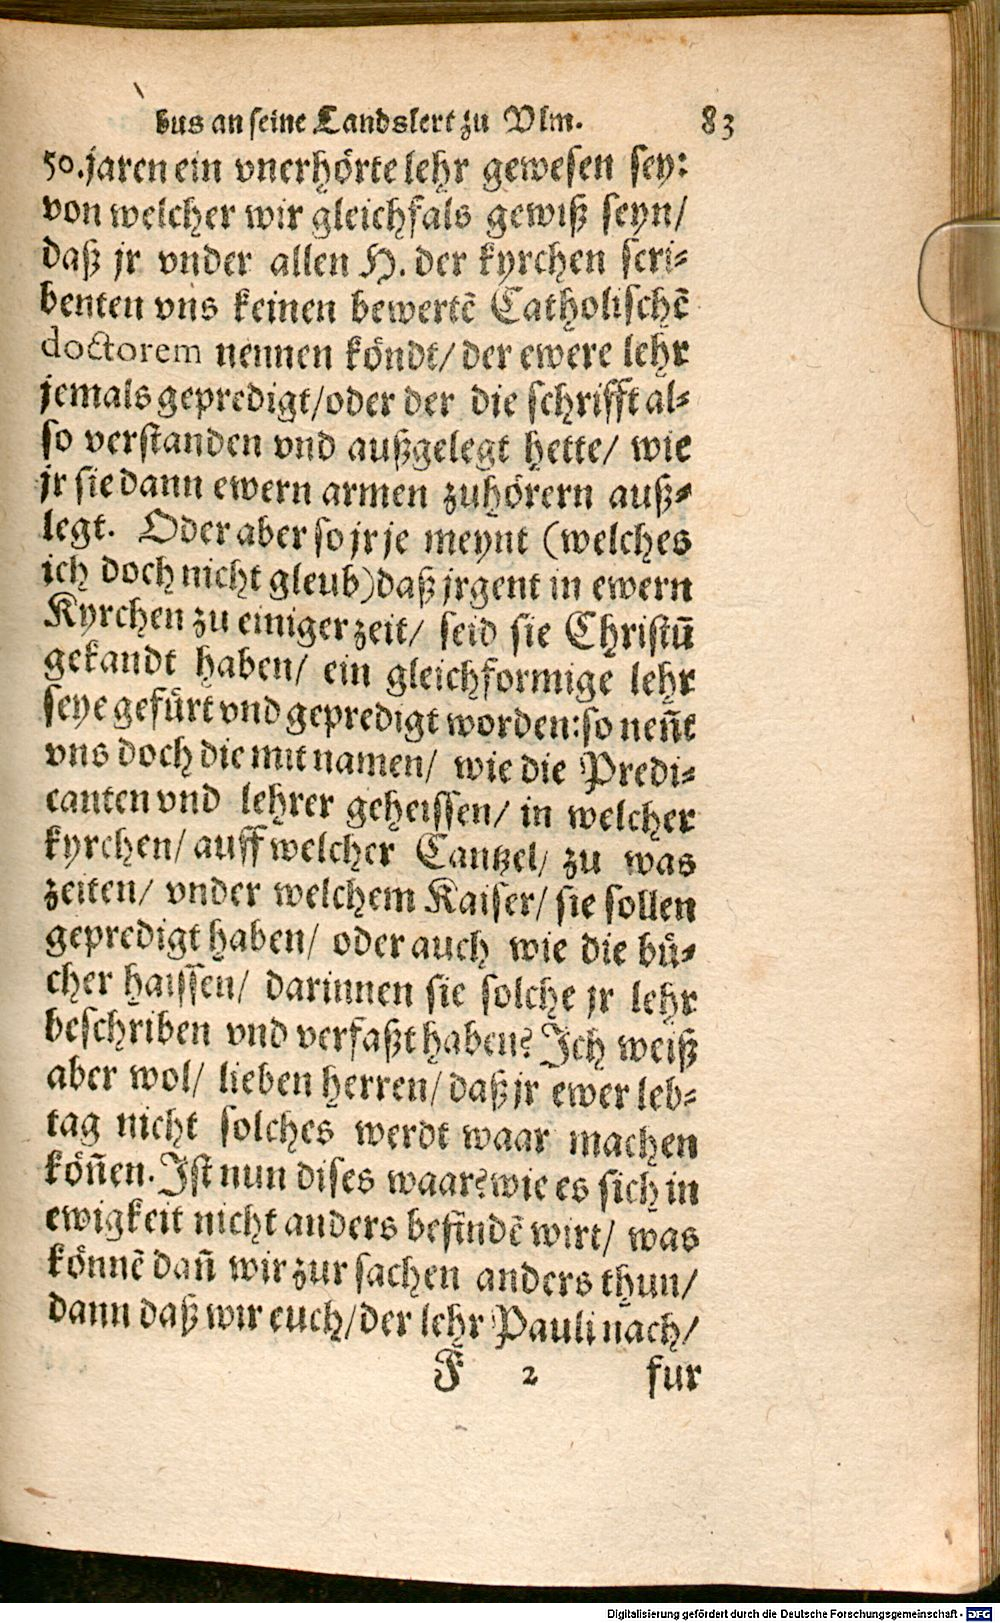 bus an seine Landslert zu Vlm. 83
50. jaren ein vnerhörte lehr gewesen sey:
von welcher wir gleichfals gewiß seyn/
daß jr vnder allen H. der kyrchen scri⸗
benten vns keinen bewertē Catholischē
doctorem nennen köndt/ der ewere lehr
jemals gepredigt/oder der die schrifft al⸗
so verstanden vnd außgelegt hette/ wie
jr sie dann ewern armen zuhörern auß⸗
legt. Oder aber so jr je meynt (welches
ich doch nicht gleub) daß jrgent in ewern
Kyrchen zu einiger zeit/ seid sie Christū
gekandt haben/ ein gleichformige lehr
seye gefürt vnd gepredigt worden: so neñt
vns doch die mit namen/ wie die Predi⸗
canten vnd lehrer geheissen/ in welcher
kyrchen/ auff welcher Cantzel/ zu was
zeiten/ vnder welchem Kaiser/ sie sollen
gepredigt haben/ oder auch wie die bü⸗
cher haissen/ darinnen sie solche jr lehr
beschriben vnd verfaßt haben? Ich weiß
aber wol/ lieben herren/ daß jr ewer leb⸗
tag nicht solches werdt waar machen
köñen. Ist nun dises waar? wie es sich in
ewigkeit nicht anders befindē wirt/ was
könnē dañ wir zur sachen anders thun/
dann daß wir euch/ der lehr Pauli nach/
F 2 fur
Digitalisierung gefördert durch die Deutsche Forschungsgemeinschaft - DFG